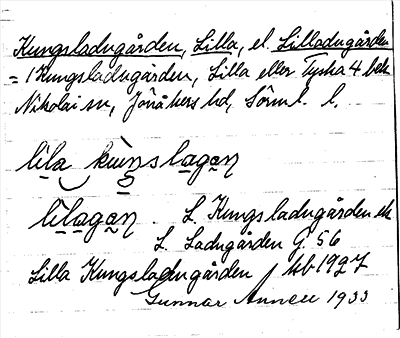 Kungsladugården, Lilla, el. Lilladugården
= 1 Kungsladugården, Lilla eller Tyska 4 bek
Nikolai sn, Jönåkers hd, Sörml. l.
lila kuŋslagaṇ
lilagaṇ . L Kungsladugården ek
L. Ladugården G. 56
Lilla Kungsladugården Mb 1927
Gunnar Annell 1933